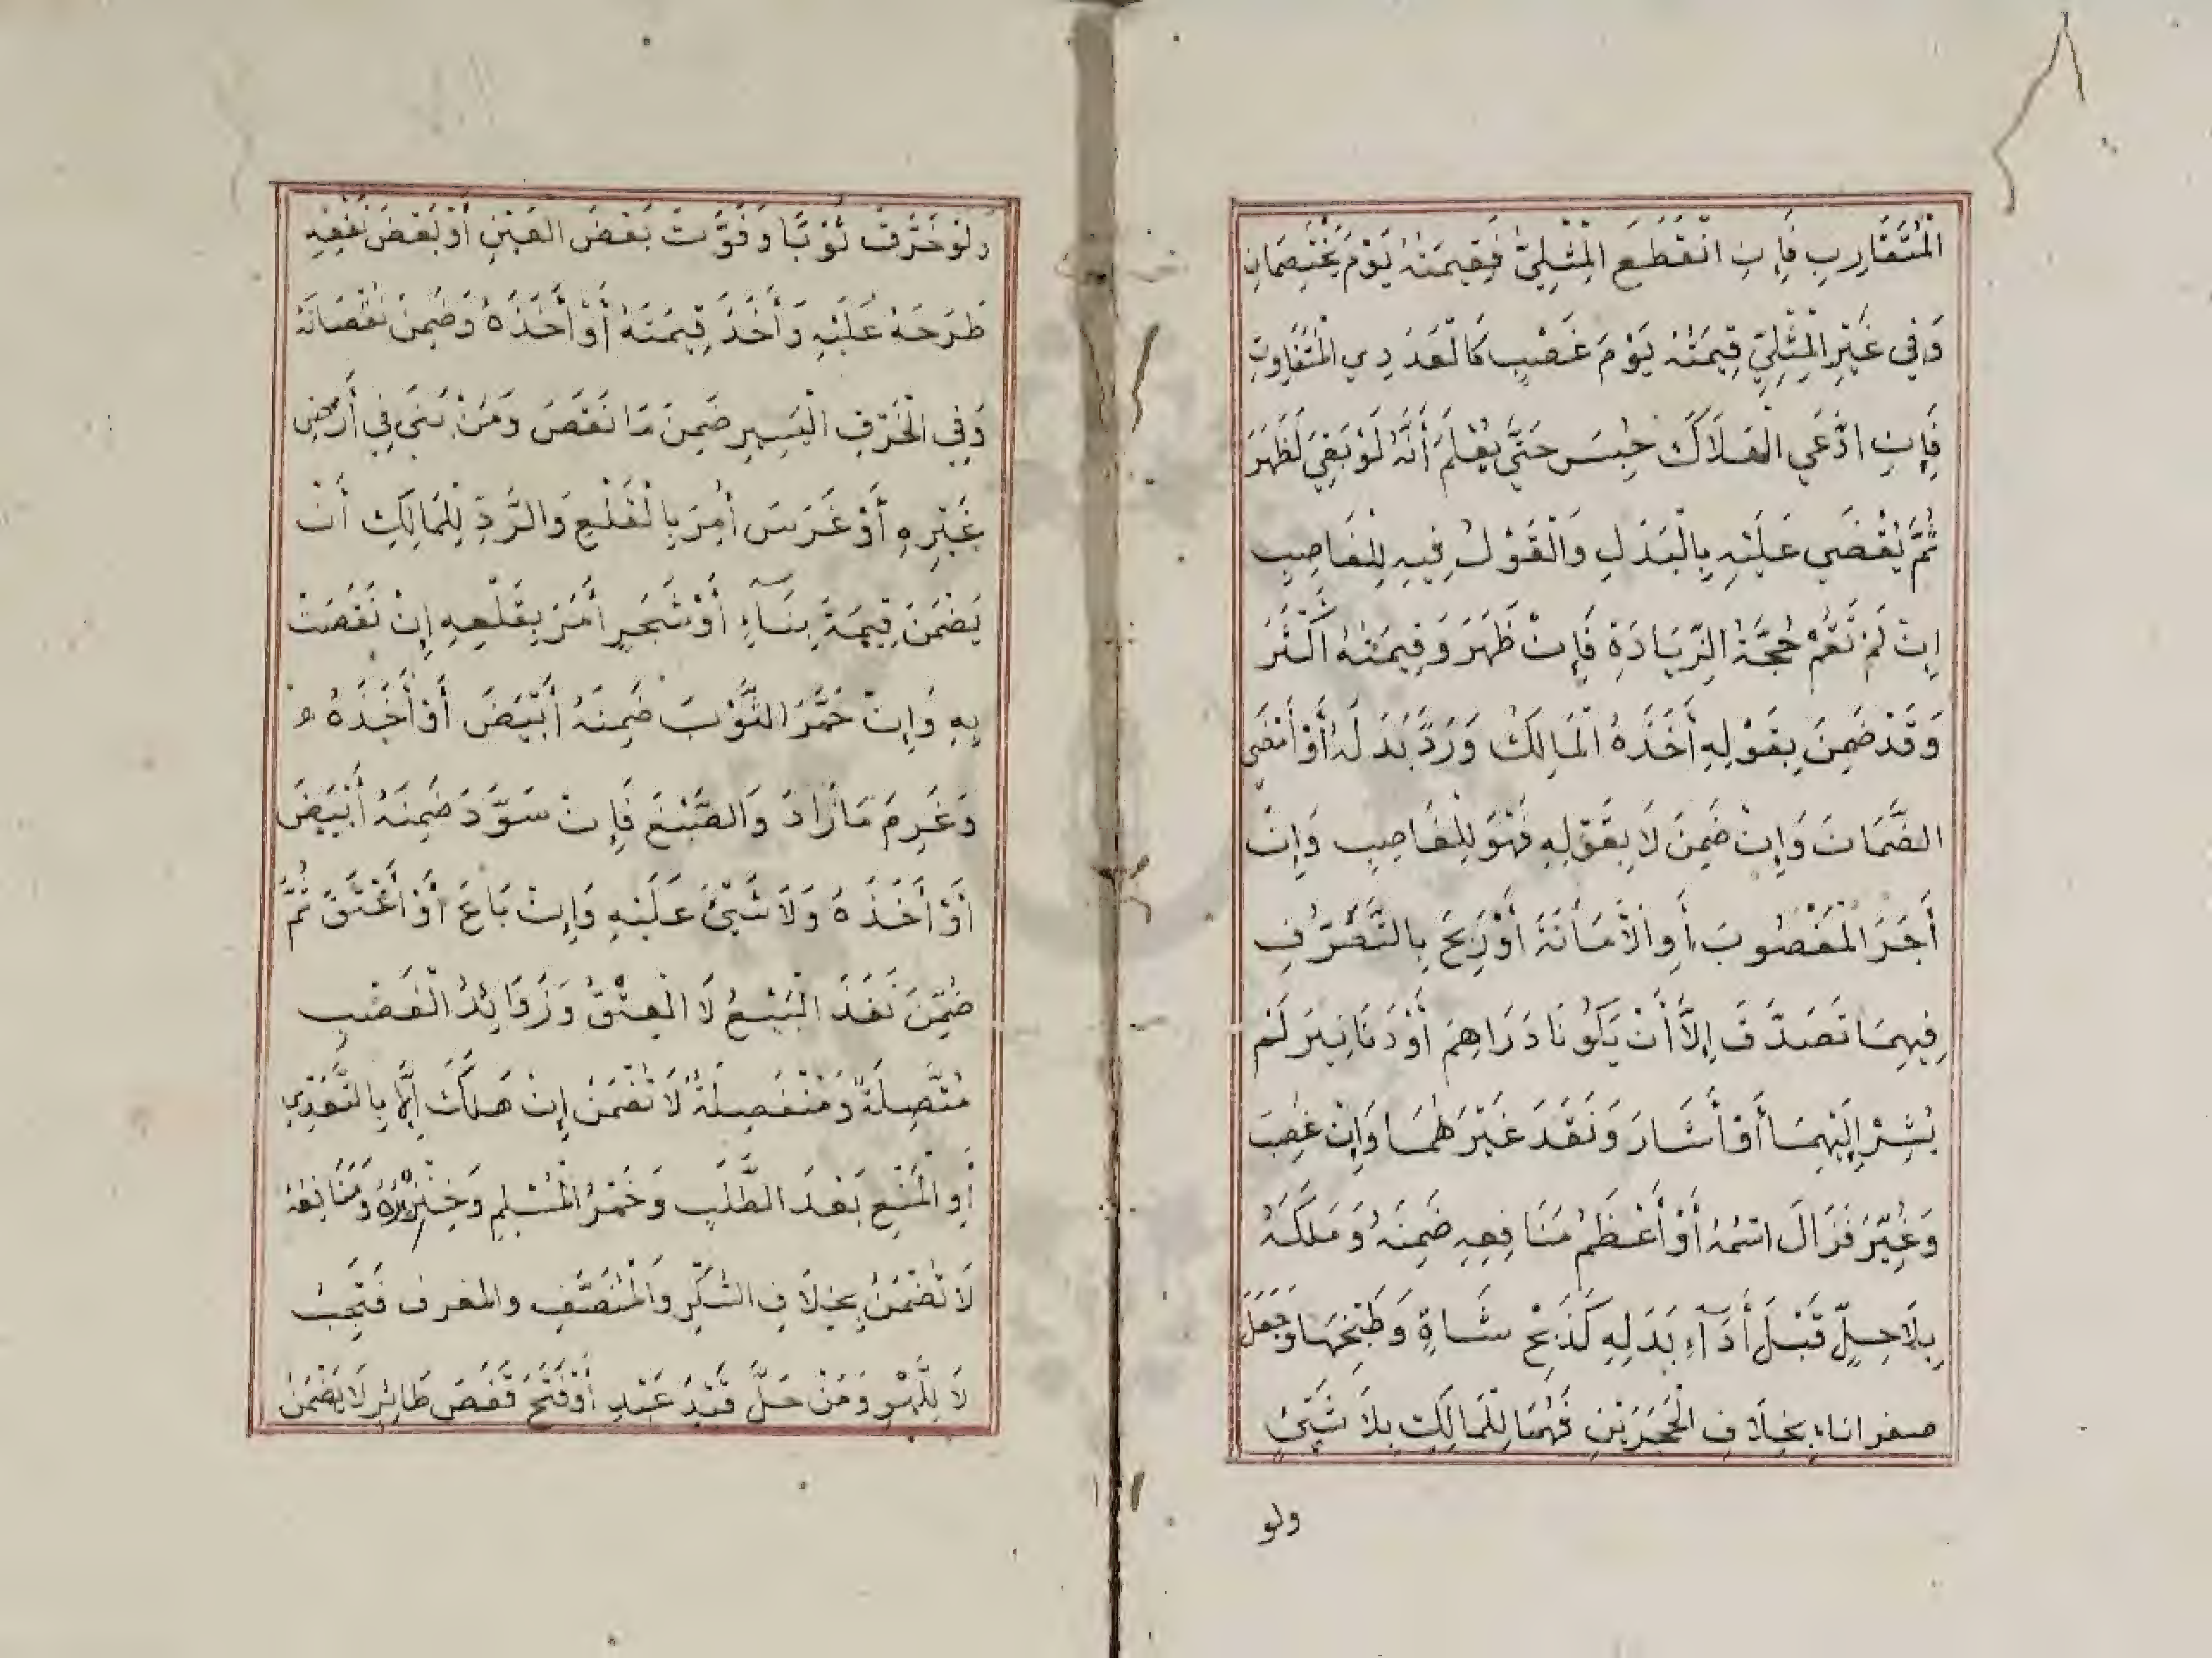 الْمُتَقَارِبِ فَإِنِ انْقَطَعَ الْمِثْلِيُّ فَقِيمَتُهُ يَوْمَ يَخْتَصِمَانِ
وَفِي غَيْرِ الْمِثْلِيِّ قِيمَتُهُ يَوْمَ غَصْبِهِ كَالْعَدَدِي الْمُتَفَاوِتِ
فَإِنِ ادَّعَي الْهَلَاكَ حُبِسَ حَتَّى يُعْلَمَ أَنَّهُ لَوْ بَقِيَ لَظَهَرَ
ثُمَّ يُقْضَي عَلَيْهِ بِالْبَدَلِ وَالْقَوْلُ فِيهِ لِلْغَاصِبِ
اِنْ لَمْ تَقُمْ حُجَّةُ الزِّيَادَةِ فَإِنْ ظَهَرَ وَقِيمَتُهُ اَكْثَرُ
وَقَدْ ضَمِنَ بِقَوْلِهِ أَخَذَهُ الْمَالِكُ وَرَدَّ بَدَلَهُ أَوْ أَمْضَي
الضَّمَانَ وَإِنْ ضَمِنَ لَا بِقَوْلِهِ فَهُوَ لِلْغَاصِبِ وَإِنْ
أَجَرَ الْمَغْصُوبَ أَوِ الْأَمَانَةَ أَوْ رَبِحَ بِالتَّصَرُّفِ
فِيهِمَا تَصَدَّقَ إِلَّا أَنْ يَكُونَا دَرَاهِمَ أَوْ دَنَانِيرَ لَمْ
يُشِرْ إِلَيْهِمَا أَوْ أَشَارَ وَنَقَدَ غَيْرَهُمَا وَإِنْ غُصِبَ
وَغُيِّرَ فَزَالَ اسْمُهُ أَوْ أَعْظَمُ مَنَافِعِهِ ضَمِنَهُ وَمَلَكَهُ
بِلَا حِلٍّ قَبْلَ أَدَآءِ بَدَلِهِ كَذَبْحِ شَاةٍ وَطَبْخِهَا وَجَعْلِ
صفر اناءٍ بِخِلَافِ الْحَجَرَيْنِ فَهُمَا لِلْمَالِكِ بِلَا شَيْئٍ
ولو
وَلَوْ خَرَّقَ ثَوْبًا وَفَوَّتَ بَعْضَ الْعَيْنِ أَوْ بَعْضَ نَفْعِهِ
طَرَحَهُ عَلَيْهِ وَأَخَذَ قِيمَتَهُ أَوْ أَخَذَهُ وَضَمِنَ نُقْصَانَهُ
وَفِي الْخَرْقِ الْيَسِيرِ ضَمِنَ مَا نَقَصَ وَمَنْ بَنَي فِي أَرْضِ
غَيْرِهِ أَوْ غَرَسَ أُمِرَ بِالْقَلْعِ وَالرَّدِّ لِلْمَالِكِ أَنْ
يَضْمَنَ قِيمَةَ بِنَآءٍ أَوْ شَجَرٍ أُمِرَ بِقَلْعِهِ إِنْ نَقَصَتْ
بِهِ وَإِنْ حَمَّرَ الثَّوْبَ ضَمِنَهُ أَبْيَضَ أَوْ أَخَذَهُ
وَغَرِمَ مَا زَادَ وَالصَّبْغَ فَإِنْ سَوَّدَ ضَمِنَهُ أَبْيَضَ
أَوْ أَخَذَهُ وَلَا شَيْئَ عَلَيْهِ وَإِنْ بَاعَ أَوْ أَعْتَقَ ثُمَّ
ضُمِّنَ نَفَذَ الْبَيْعُ لَا الْعِتْقُ وَزَوَائِدُ الْغَصْبِ
مُتَّصِلَةً وَمُنْفَصِلَةً لَا تُضْمَنُ إِنْ هَلَكَ إِلَّا بِالتَّعَدِّي
أَوِ الْمَنْعِ بَعْدَ الطَّلَبِ وَخَمْرُ الْمُسْلِمِ وَخِنْزِيرُهُ وَمَنَافِعُهُ
لَا تُضْمَنُ بِخِلَافِ السَّكَرِ وَالْمُنَصَّفِ والمعزف فَتَجِبُ
لَا لِلَّهْوِ وَمَنْ حَلَّ قَيْدَ عَبْدٍ أَوْ فَتَحَ قَفَصَ طَائِرٍ لَا يَضْمَنُ